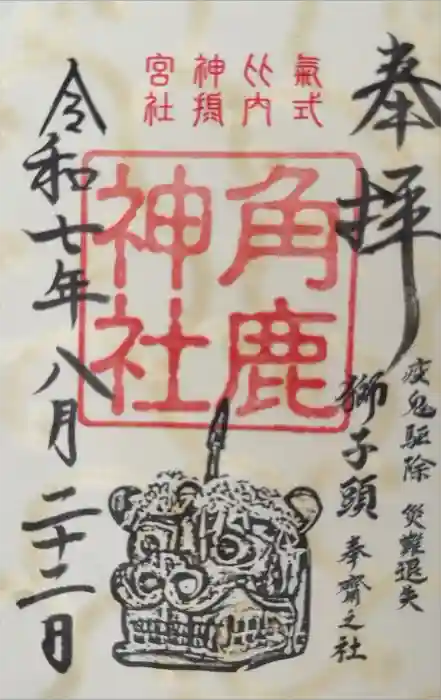 奉拝
疫鬼驅除 災難退失
獅子頭 奉齋之社
氣比神宮
式内摂社
角鹿
神社
令和七年八月二十二日